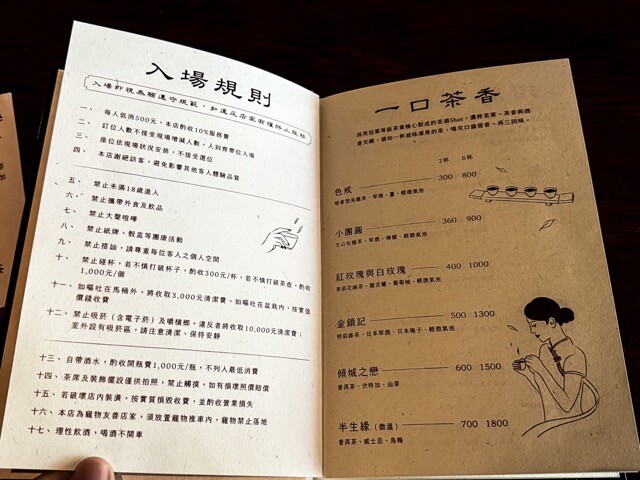 入場規則
入場即視為願遵守規範，如違反店家有權終止服務
一、 每人低消500元，本店酌收10%服務費
二、 訂位人數不接受現場增減人數，人到齊帶位入場
三、 座位依現場狀況安排，不接受選位
四、 本店謝絕訪客，避免影響其他客人體驗品質
五、 禁止未滿18歲進入
六、 禁止攜帶外食及飲品
七、 禁止大聲喧嘩
八、 禁止紙牌、骰盅等團康活動
九、 禁止搭訕，請尊重每位客人之個人空間
十、 禁止碰杯，若不慎打破杯子，酌收300元/杯，若不慎打破茶壺，酌收
1,000元/個
十一、 如嘔吐在馬桶外，將收取3,000元清潔費。如嘔吐在盆栽內，按實值
價錢收費
十二、 禁止吸菸（含電子菸）及嚼檳榔，違反者將收取10,000元清潔費；
室外設有吸菸區，請注意清潔、保持安靜
十三、 自帶酒水，酌收開瓶費1,000元/瓶，不列入最低消費
十四、 茶席及裝飾擺設僅供拍照，禁止觸摸，如有損壞照價賠償
十五、 若破壞店內裝潢，按實質損毀收費，並酌收營業損失
十六、 本店為寵物友善店家，須放置寵物推車內，寵物禁止落地
十七、 理性飲酒，喝酒不開車
一口茶香
採用冠軍等級茶葉精心製成的茶酒Shot，濃粹茶葉、茶香與酒
香交織，請如一杯滋味渾厚的茶，喝完口齒留香、再三回味。
2杯 6杯
色戒 300 800
桂香型烏龍茶、琴酒、薑、輕微氣泡
小團圓 360 900
文山包種茶、琴酒、檸檬、輕微氣泡
紅玫瑰與白玫瑰 400 1000
茉莉花綠茶、龍舌蘭、葡萄柚、輕微氣泡
金鎖記 500 1300
明前綠茶、日本琴酒、日本梅子、輕微氣泡
傾城之戀 600 1500
普洱茶、伏特加、仙草
半生緣（微溫） 700 1800
普洱茶、威士忌、烏梅